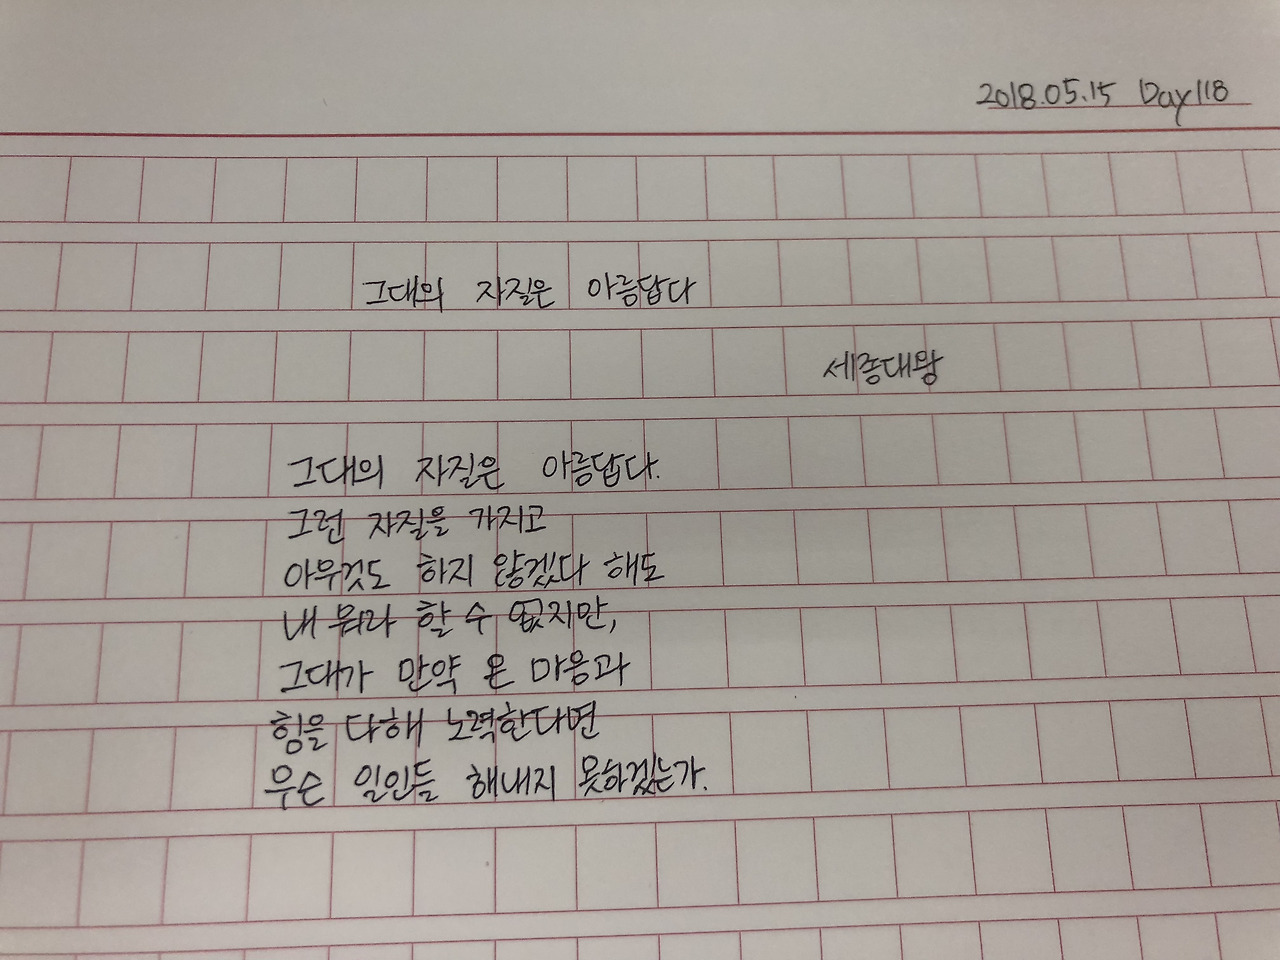 2018.05.15 Day118
그대의 자질은 아름답다
세종대왕
그대의 자질은 아름답다.
그런 자질을 가지고
아무것도 하지 않겠다 해도
내 뭐라 할 수 없지만,
그대가 만약 온 마음과
힘을 다해 노력한다면
무슨 일인들 해내지 못하겠는가.